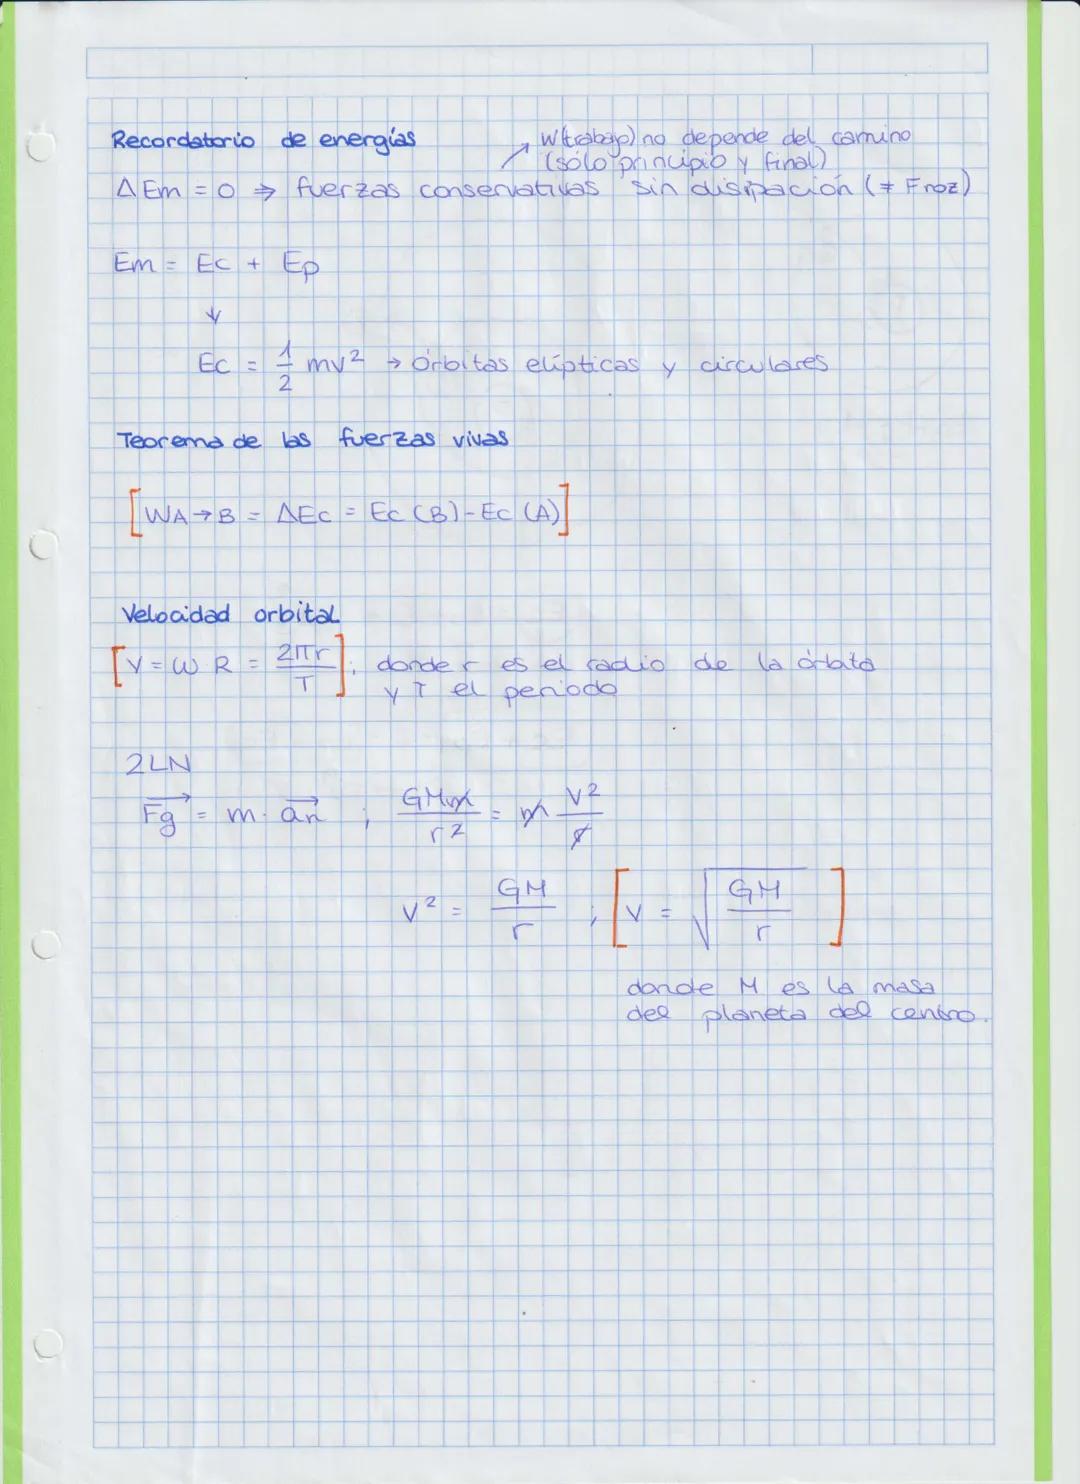 Recordatorio de energías
W(trabajo) no depende del camino
(sólo principio y final)
ΔEm = 0 ⇒ fuerzas conservativas sin disipación (≠ Froz)
Em = Ec + Ep
↓
Ec = 1/2 mv² → órbitas elípticas y circulares
Teorema de las fuerzas vivas
[WA→B = ΔEc = Ec (B) - Ec (A)]
Velocidad orbital
[V = ω R = 2πr/T]; donde r es el radio de la órbita
y T el periodo
2LN
Fg = m · an ; GMm/r² = m V²/r
V² = GM/r ; [V = √GM/r]
donde M es la masa
del planeta del centro.